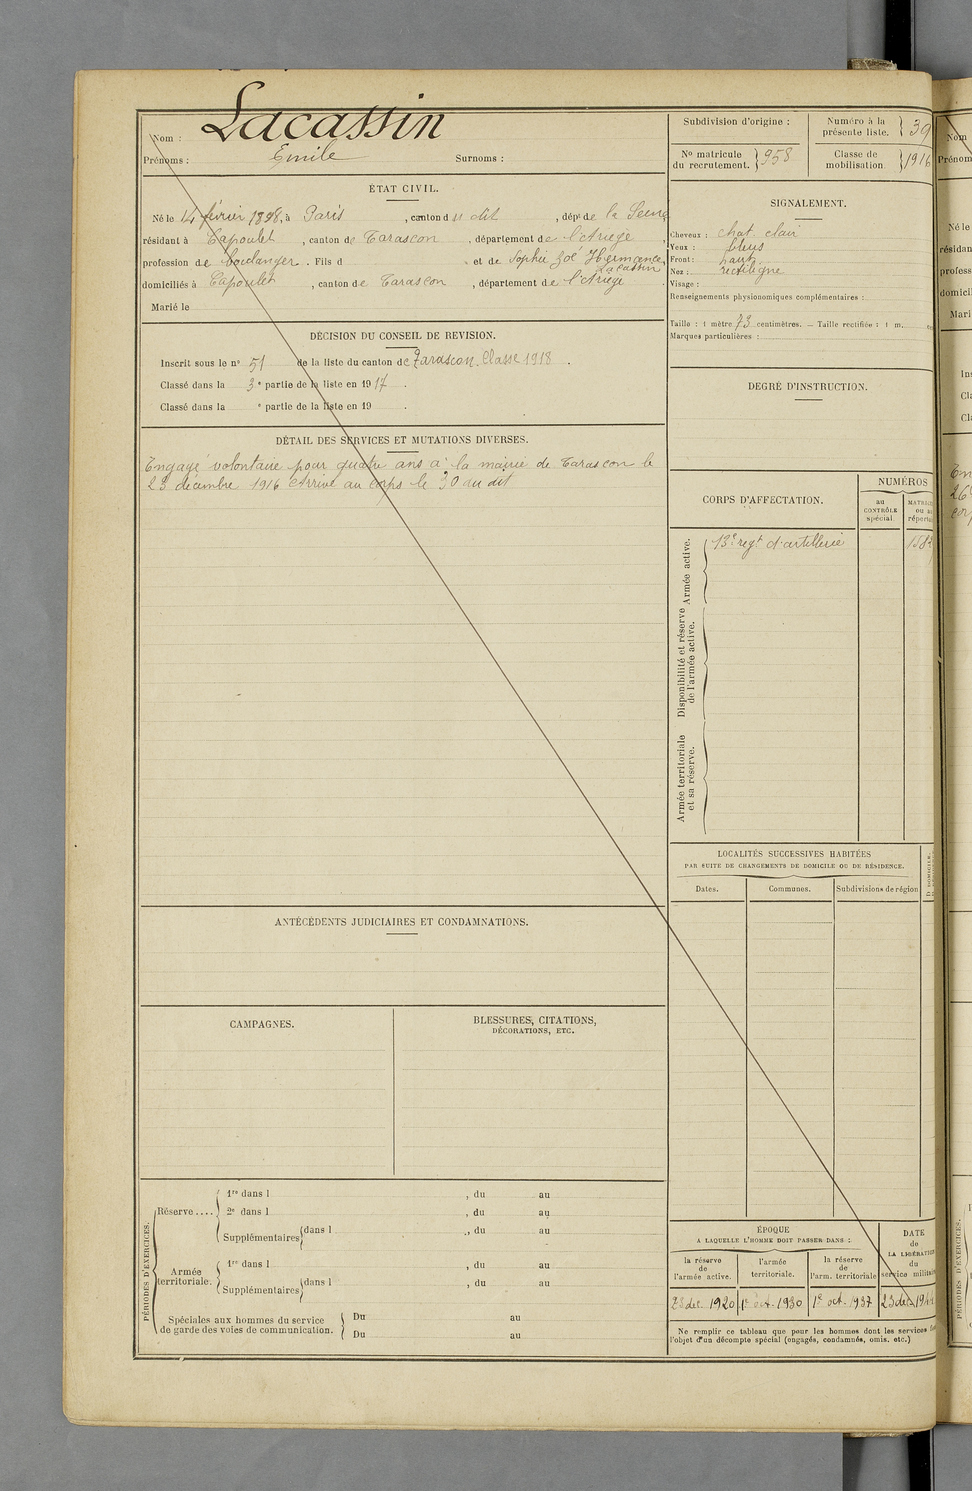 Nom : Lacassin
Prénoms : Emile Surnoms :
Subdivision d'origine :
Numéro à la présente liste. } 39
No matricule du recrutement. } 958
Classe de mobilisation. } 1916
ÉTAT CIVIL.
Né le 14 février 1898, à Paris, canton du dit, dépt de la Seine
résidant à Capoulet, canton de Tarascon, département de l'Ariège,
profession de boulanger. Fils d et de Sophie Zoé Hermance
Lacassin
domiciliés à Capoulet, canton de Tarascon, département de l'Ariège.
Marié le
SIGNALEMENT.
Cheveux : chat clair
Yeux : bleus
Front : haut
Nez : rectiligne
Visage :
Renseignements physionomiques complémentaires :
Taille : 1 mètre 73 centimètres. — Taille rectifiée : 1 m.
Marques particulières :
DÉCISION DU CONSEIL DE REVISION.
Inscrit sous le no 51 de la liste du canton de Tarascon. Classe 1918.
Classé dans la 3e partie de la liste en 1917.
Classé dans la e partie de la liste en 19 .
DEGRÉ D'INSTRUCTION.
DÉTAIL DES SERVICES ET MUTATIONS DIVERSES.
Engagé volontaire pour quatre ans à la mairie de Tarascon le
23 décembre 1916 Arrivé au corps le 30 du dit
CORPS D'AFFECTATION.
NUMÉROS
au CONTRÔLE spécial.
Armée active.
13e regt d'artillerie
Disponibilité et réserve de l'armée active.
Armée territoriale et sa réserve.
LOCALITÉS SUCCESSIVES HABITÉES
PAR SUITE DE CHANGEMENTS DE DOMICILE OU DE RÉSIDENCE.
Dates. Communes. Subdivisions de région
ANTÉCÉDENTS JUDICIAIRES ET CONDAMNATIONS.
CAMPAGNES.
BLESSURES, CITATIONS,
DÉCORATIONS, ETC.
PÉRIODES D'EXERCICES.
Réserve .... { 1re dans l , du au
2e dans l , du au
Supplémentaires { dans l , du au
Armée territoriale. { 1re dans l , du au
Supplémentaires { dans l , du au
Spéciales aux hommes du service de garde des voies de communication. { Du au
Du au
ÉPOQUE
A LAQUELLE L'HOMME DOIT PASSER DANS :
la réserve de l'armée active.
l'armée territoriale.
la réserve de l'arm. territoriale
DATE de LA LIBÉRATION du service militaire
23 déc. 1920 1er oct. 1930 1er oct. 1937 23 déc.
Ne remplir ce tableau que pour les hommes dont les services
l'objet d'un décompte spécial (engagés, condamnés, omis, etc.)